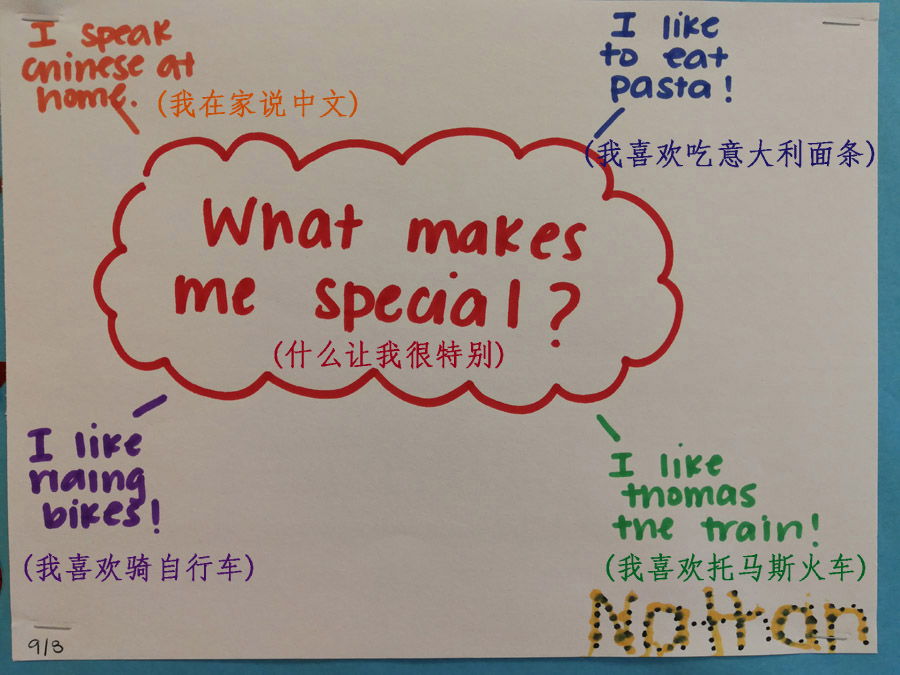 I speak
chinese at
home.
(我在家说中文)
I like
to eat
pasta!
(我喜欢吃意大利面条)
What makes
me special?
(什么让我很特别)
I like
riding
bikes!
(我喜欢骑自行车)
I like
thomas
the train!
(我喜欢托马斯火车)
Nathan
9/3